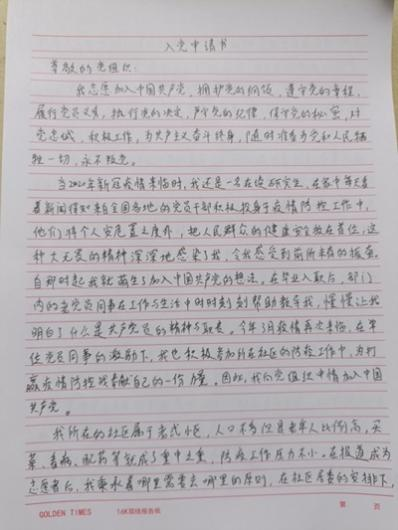 入党申请书
尊敬的党组织:
我志愿加入中国共产党,拥护党的纲领,遵守党的章程,
履行党员义务,执行党的决定,严守党的纪律,保守党的秘密,对
党忠诚,积极工作,为共产主义奋斗终身,随时准备为党和人民牺
牲一切,永不叛党。
当2020年新冠疫情来临时,我还是一名在读研究生,在家中每天看
着新闻得知来自全国各地的党员干部积极投身于疫情防控工作中,
他们将个人安危置之度外,把人民群众的健康安全放在首位,这
种大无畏的精神深深地感染了我,令我感受到前所未有的振奋。
自那时起我就萌生了加入中国共产党的想法。在毕业入职后,部门
内的党员同事在工作与生活中时时刻刻帮助教导我,慢慢让我
明白了什么是共产党员的精神与职责。今年3月疫情再次来临,在单
位党员同事的激励下,我也积极参加所在社区的防控工作中,为打
赢疫情防控战奉献自己的一份力量。因此,我向党组织申请加入中国
共产党。
我所在的社区属于老式小区,人口不多但是老年人比例高,买
菜、看病、配药等就成了重中之重,防疫工作压力不小。在报道成为
志愿者后,我秉承着哪里需要去哪里的原则,在社区居委的安排下,
GOLDEN TIMES 16K双线报告纸 第 页